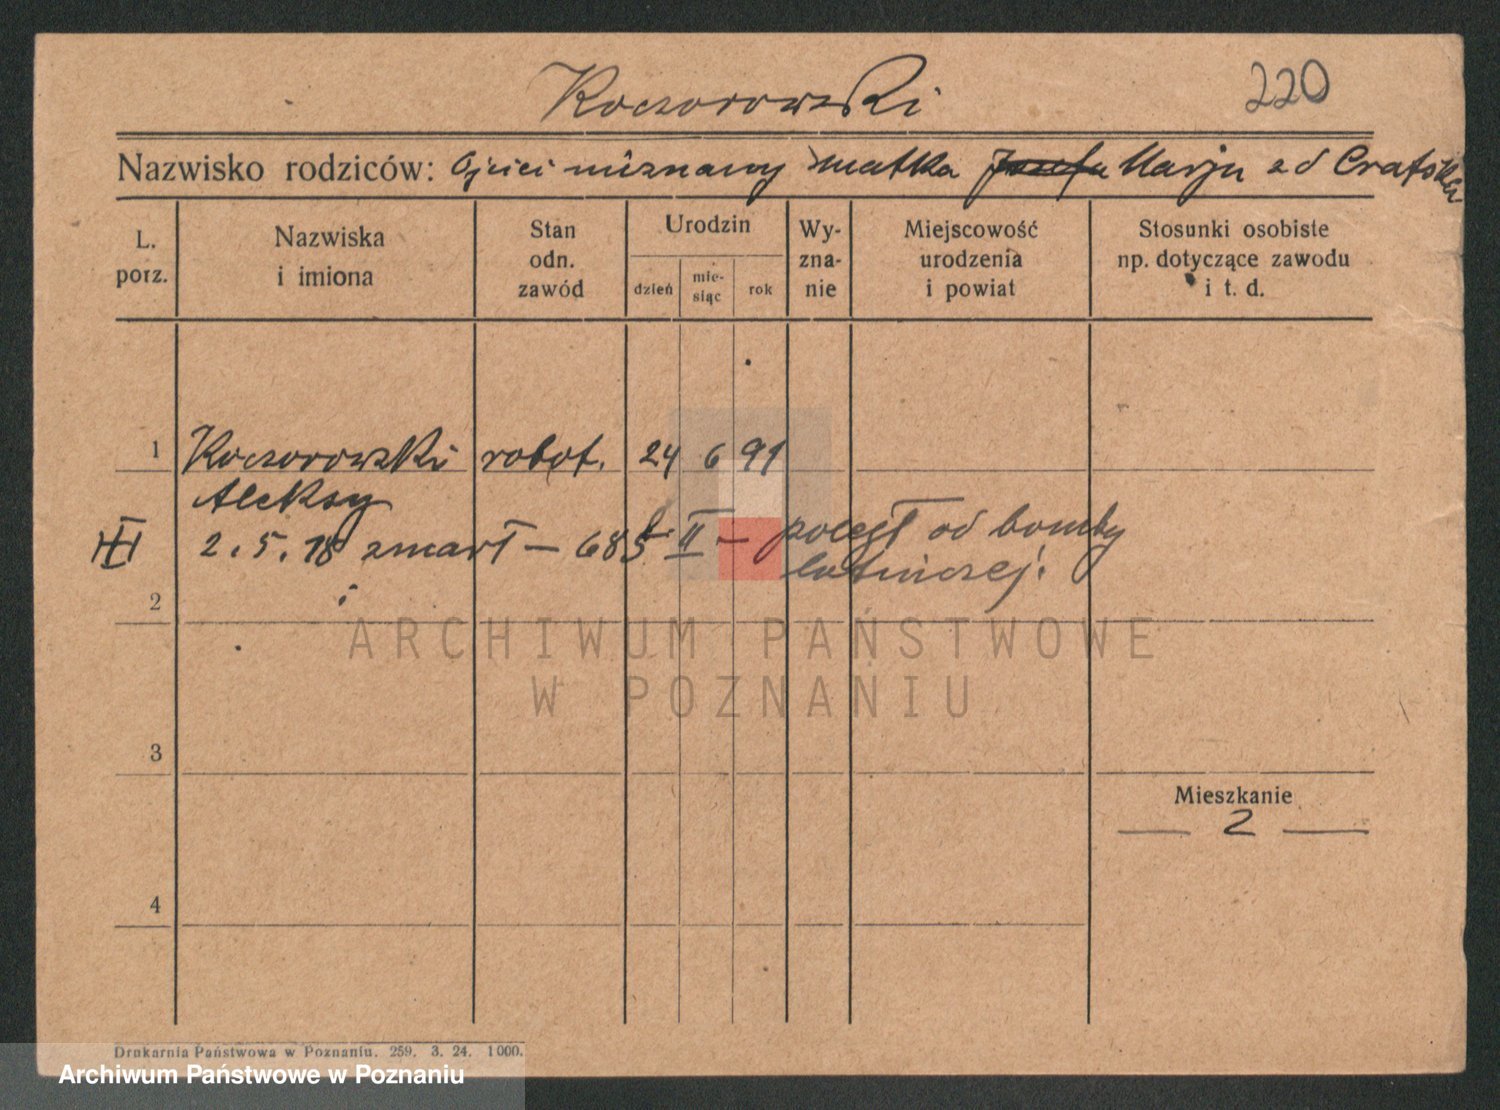 Koczorowski 220
Nazwisko rodziców: Ojciec nieznany matka Josefa Marja z d
L. porz.
Nazwiska i imiona
Stan odn. zawód
Urodzin
dzień
mie-
siąc
rok
Wy-
zna-
nie
Miejscowość
urodzenia
i powiat
Stosunki osobiste
np. dotyczące zawodu
i t. d.
1 Koczorowski robot. 24 6 91
Aleksy
2. 5. 18 zmarł — 685 II — poległ od bomby
lotniczej.
2
ARCHIWUM PAŃSTWOWE
W POZNANIU
3
Mieszkanie
2
4
Drukarnia Państwowa w Poznaniu. 259. 3. 24. 1000.
Archiwum Państwowe w Poznaniu